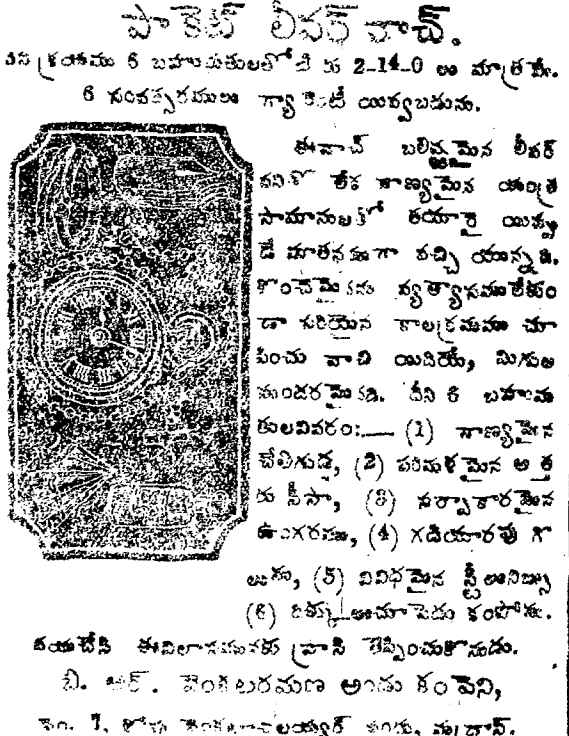 పాకెట్ లీవర్ వాచ్.
6 బహుమతులతో 2-14-0 లు మాత్రమే.
6 సంవత్సరములు గ్యారెంటీ యివ్వబడును.
ఈవాచ్ బలిష్ఠమైన లీవర్
నాణ్యమైన యంత్ర
సామానులతో తయారై యిప్పు
డే నూతనముగా వచ్చి యున్నది.
కొంచమైనను వ్యత్యాసములేకుం
డా సరియైన కాలక్రమము చూ
పించు వాచి యిదియే, మిగుల
సుందరమైనది. దీని 6 బహుమ
తులవివరం:— (1) నాణ్యమైన
చేతిగుడ్డ, (2) పరిమళమైన అత్త
రు సీసా, (3) సర్పాకారమైన
ఉంగరము, (4) గడియారపు గొ
లుసు, (5) వివిధమైన స్టీలునిబ్సు
(6) దిక్కులుచూపెడు కంపాసు.
దయచేసి ఈవిలాసమునకు వ్రాసి తెప్పించుకొనుడు.
బి. ఆర్. వెంకటరమణ అండు కంపెని,
నెం. 7,